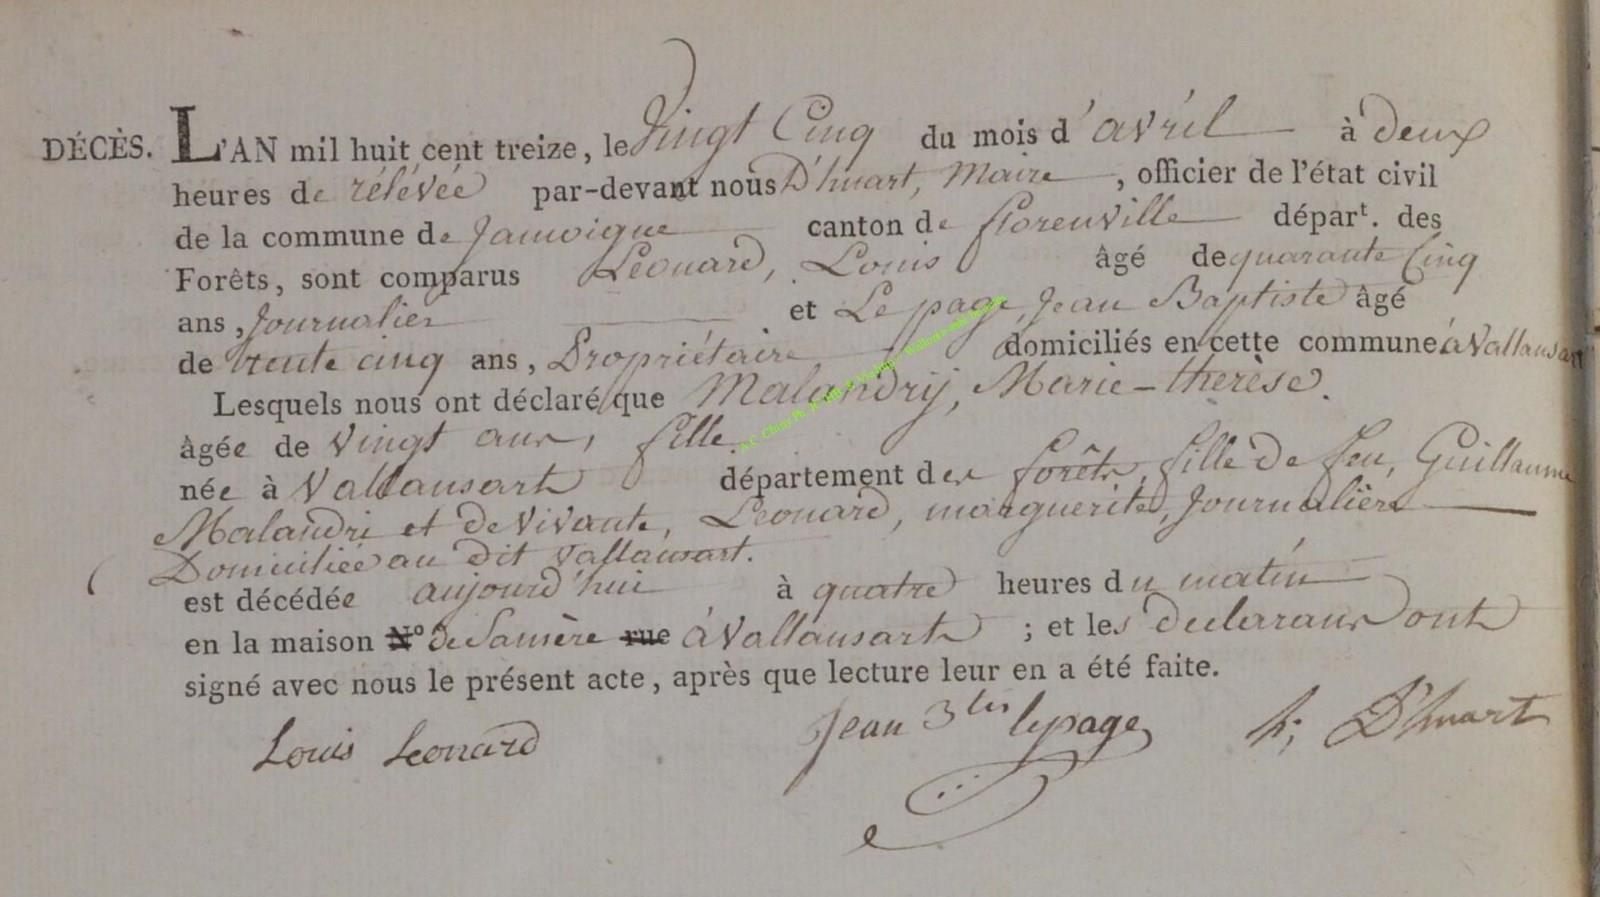 DÉCÈS. L'AN mil huit cent treize, le Vingt Cinq du mois d'avril à deux
heures de rélévée par-devant nous D'huart, Maire, officier de l'état civil
de la commune de Jamoigne canton de florenville départ. des
Forêts, sont comparus Léonard, Louis âgé de quarante Cinq
ans, Journalier et Le page, Jean Baptiste âgé
de trente cinq ans, Propriétaire domiciliés en cette commune à Vallansart
Lesquels nous ont déclaré que Malandrij, Marie-thérèse.
âgée de Vingt ans, fille.
née à Vallansart département des forêts, fille de feu, Guillaume
Malandri et de Vivante, Léonard, marguerite, Journalière
Domiciliée au dit Vallansart.
est décédée aujourd'hui à quatre heures du matin
en la maison N° de Samère rue à Vallansart ; et les declarans ont
signé avec nous le présent acte, après que lecture leur en a été faite.
Louis Leonard Jean Btis lepage h; D'huart